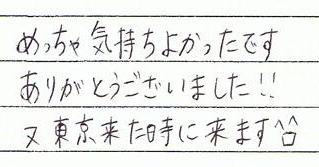 めっちゃ気持ちよかったです
ありがとうございました!!
又東京来た時に来ます^^